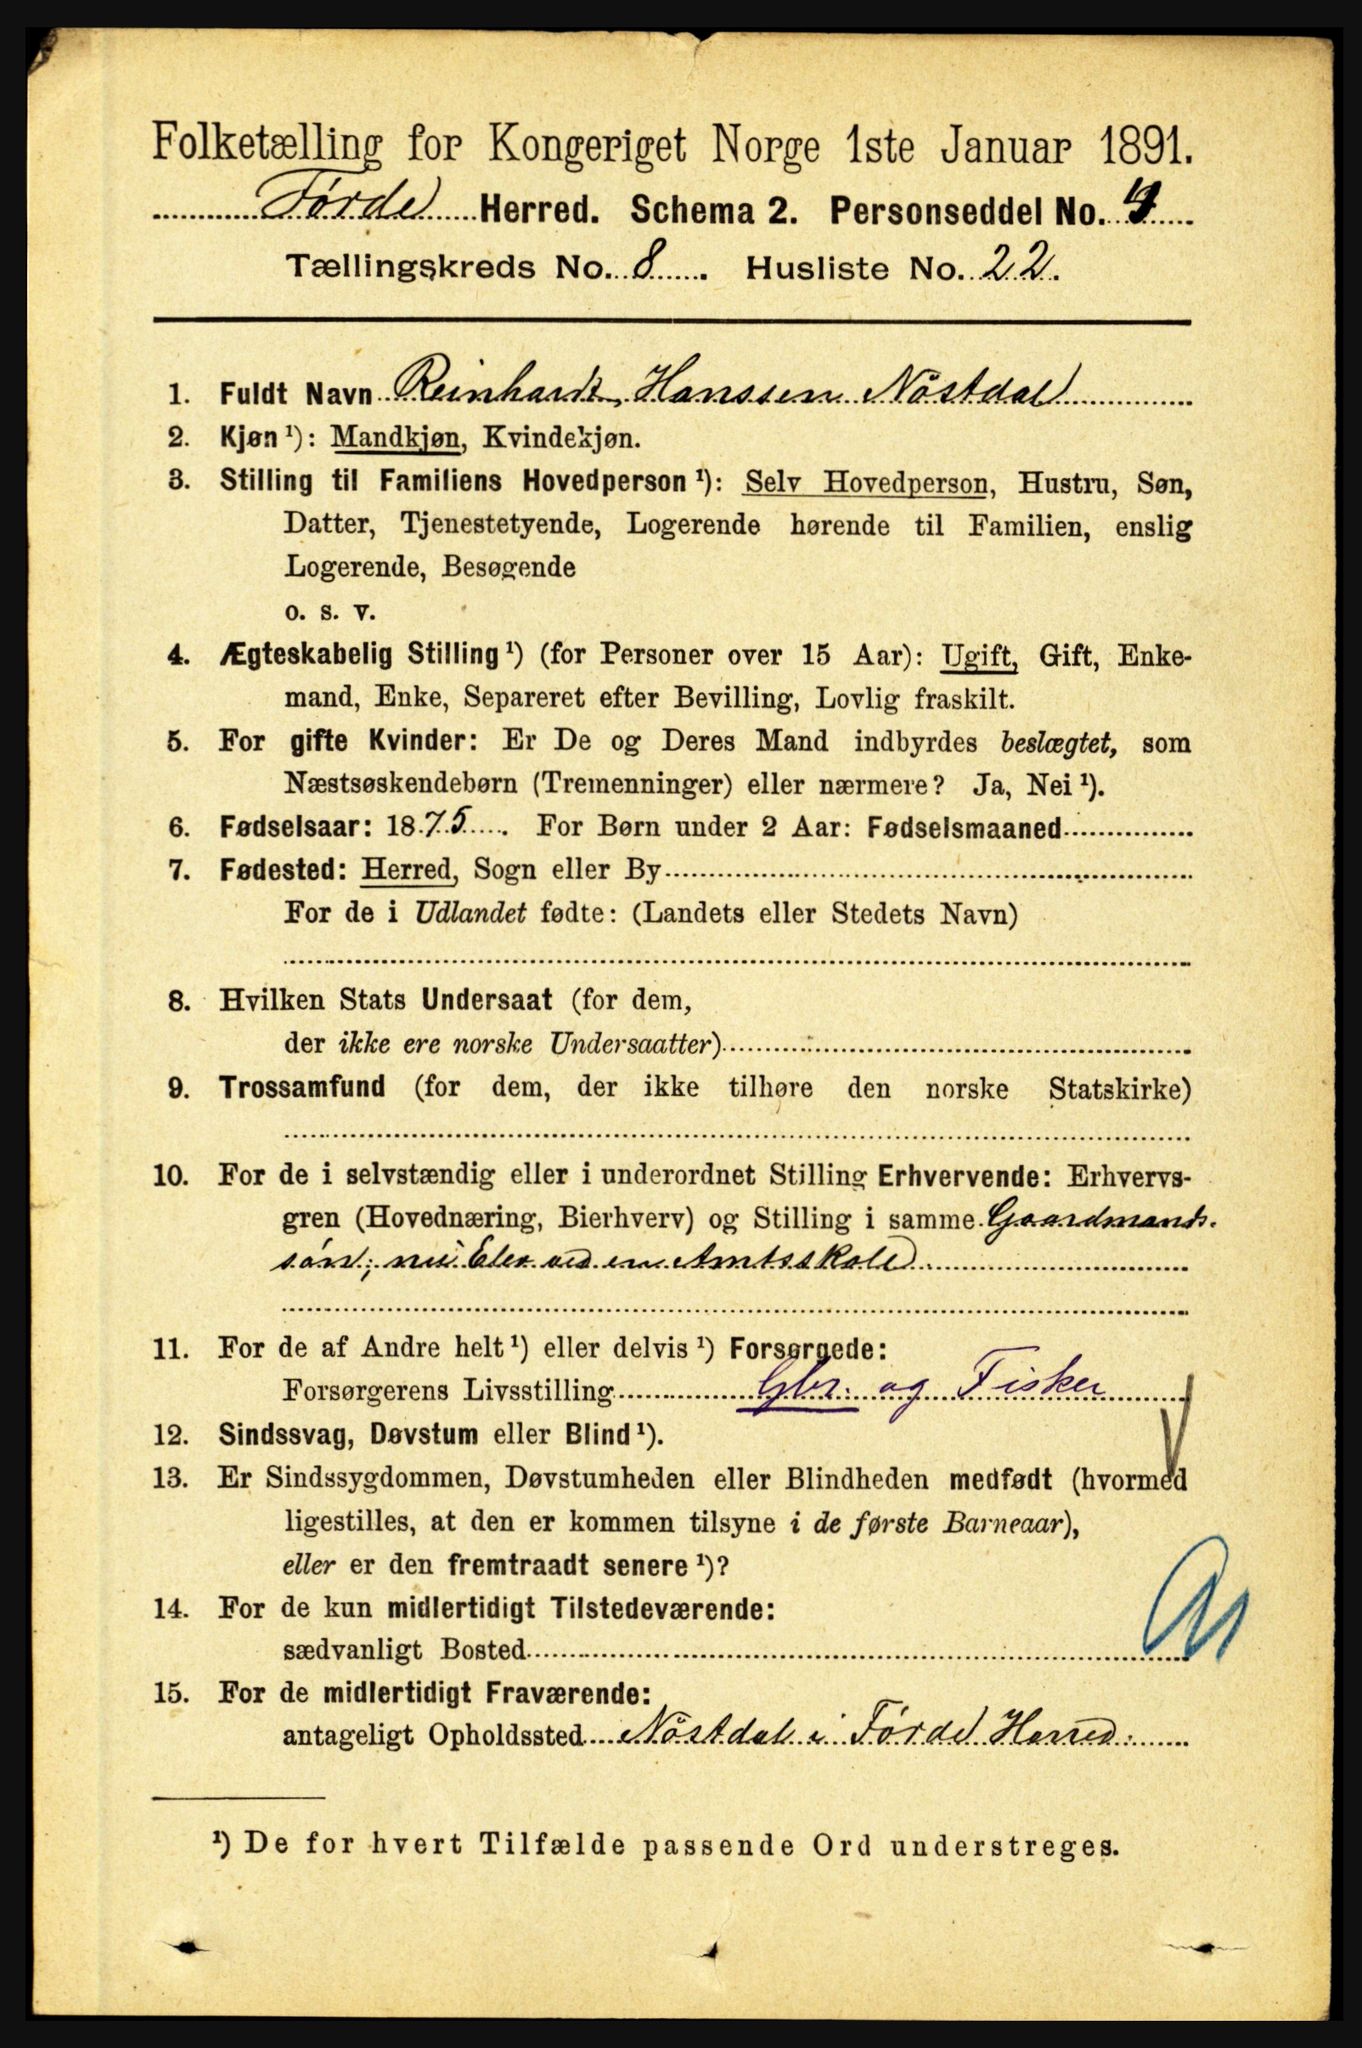 Folketælling for Kongeriget Norge 1ste Januar 1891.
Førde Herred. Schema 2. Personseddel No.
Tællingskreds No. 8. Husliste No. 22.
1. Fuldt Navn Reinhardt Hanssen Nöstdal
2. Kjøn¹): Mandkjøn, Kvindekjøn.
3. Stilling til Familiens Hovedperson¹): Selv Hovedperson, Hustru, Søn,
Datter, Tjenestetyende, Logerende hørende til Familien, enslig
Logerende, Besøgende
o. s. v.
4. Ægteskabelig Stilling¹) (for Personer over 15 Aar): Ugift, Gift, Enke-
mand, Enke, Separeret efter Bevilling, Lovlig fraskilt.
5. For gifte Kvinder: Er De og Deres Mand indbyrdes beslægtet, som
Næstsøskendebørn (Tremenninger) eller nærmere? Ja, Nei¹).
6. Fødselsaar: 1875. For Børn under 2 Aar: Fødselsmaaned
7. Fødested: Herred, Sogn eller By
For de i Udlandet fødte: (Landets eller Stedets Navn)
8. Hvilken Stats Undersaat (for dem,
der ikke ere norske Undersaatter)
9. Trossamfund (for dem, der ikke tilhøre den norske Statskirke)
10. For de i selvstændig eller i underordnet Stilling Erhvervende: Erhvervs-
gren (Hovednæring, Bierhverv) og Stilling i samme Gaardmands-
sön; nu Elev ved en Amtsskole.
11. For de af Andre helt¹) eller delvis¹) Forsørgede:
Forsørgerens Livsstilling Gbr. og Fisker
12. Sindssvag, Døvstum eller Blind¹).
13. Er Sindssygdommen, Døvstumheden eller Blindheden medfødt (hvormed
ligestilles, at den er kommen tilsyne i de første Barneaar),
eller er den fremtraadt senere¹)?
14. For de kun midlertidigt Tilstedeværende:
sædvanligt Bosted
15. For de midlertidigt Fraværende:
antageligt Opholdssted Nöstdal i Førde Herred.
¹) De for hvert Tilfælde passende Ord understreges.